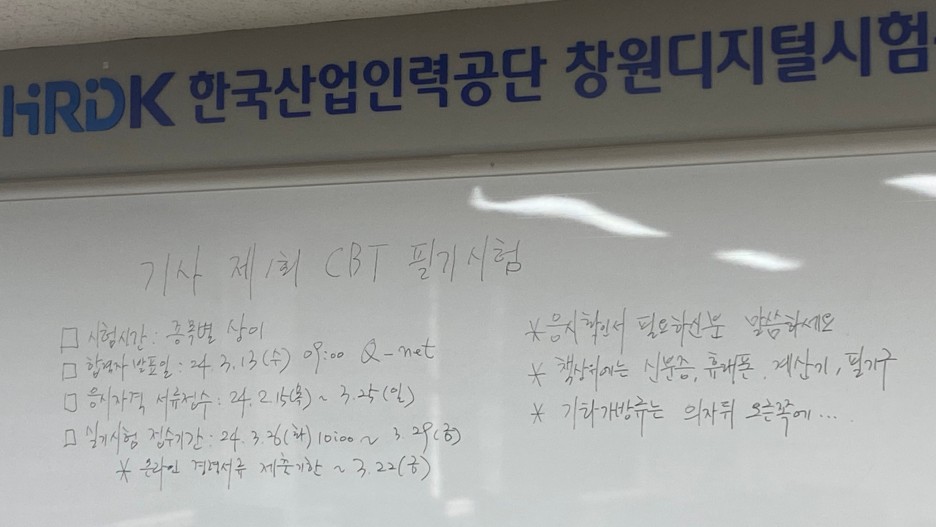 HRDK 한국산업인력공단 창원디지털시험
기사 제1회 CBT 필기시험
□ 시험시간 : 종목별 상이
□ 합격자 발표일 : 24. 3. 13 (수) 09:00 Q-net
□ 응시자격 서류접수 : 24. 2. 15(목) ~ 3. 25(일)
□ 실기시험 접수기간 : 24. 3. 26(화) 10:00 ~ 3. 29(금)
* 온라인 경력서류 제출기한 ~ 3. 22(금)
* 응시확인서 필요하신분 말씀하세요
* 책상위에는 신분증, 휴대폰, 계산기, 필기구
* 기타가방류는 의자뒤 오른쪽에...